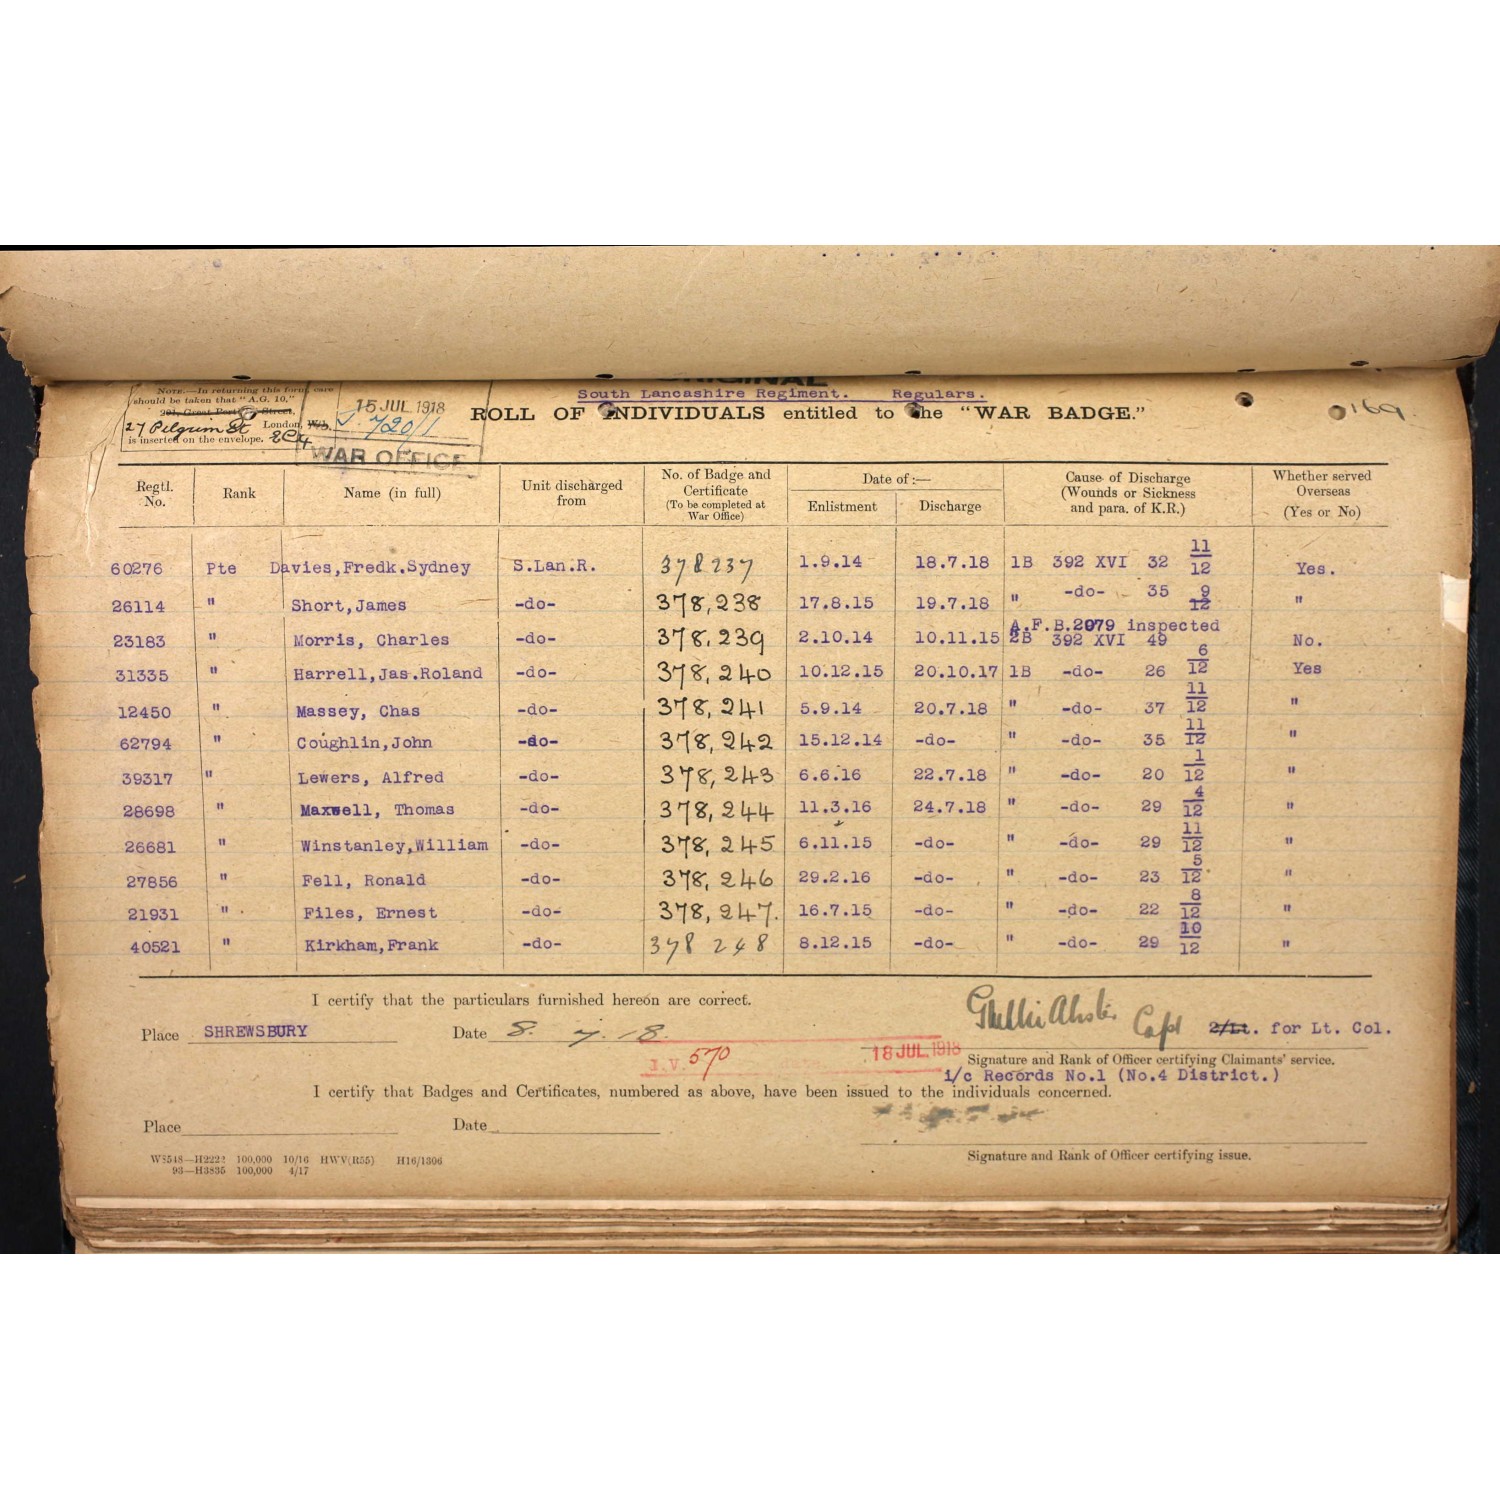 ORIGINAL
NOTE.—In returning this form, care
should be taken that "A.G. 10,"
291, Great Portland Street,
27 Pilgrim St London, W.
is inserted on the envelope. EC4
15 JUL 1918
J. 720/1
WAR OFFICE
South Lancashire Regiment. Regulars.
ROLL OF INDIVIDUALS entitled to the "WAR BADGE."
169.
Regtl. No. Rank Name (in full) Unit discharged from No. of Badge and Certificate (To be completed at War Office) Date of:— Enlistment Discharge Cause of Discharge (Wounds or Sickness and para. of K.R.) Whether served Overseas (Yes or No)
60276 Pte Davies,Fredk.Sydney S.Lan.R. 378237 1.9.14 18.7.18 1B 392 XVI 32 11/12 Yes.
26114 " Short,James -do- 378,238 17.8.15 19.7.18 " -do- 35 9/12 "
A.F.B.2079 inspected
23183 " Morris, Charles -do- 378,239 2.10.14 10.11.15 2B 392 XVI 49 No.
31335 " Harrell,Jas.Roland -do- 378,240 10.12.15 20.10.17 1B -do- 26 6/12 Yes
12450 " Massey, Chas -do- 378,241 5.9.14 20.7.18 " -do- 37 11/12 "
62794 " Coughlin,John -do- 378,242 15.12.14 -do- " -do- 35 11/12 "
39317 " Lewers, Alfred -do- 378,243 6.6.16 22.7.18 " -do- 20 1/12 "
28698 " Maxwell, Thomas -do- 378,244 11.3.16 24.7.18 " -do- 29 4/12 "
26681 " Winstanley,William -do- 378,245 6.11.15 -do- " -do- 29 11/12 "
27856 " Fell, Ronald -do- 378,246 29.2.16 -do- " -do- 23 5/12 "
21931 " Files, Ernest -do- 378,247. 16.7.15 -do- " -do- 22 8/12 "
40521 " Kirkham,Frank -do- 378 248 8.12.15 -do- " -do- 29 10/12 "
I certify that the particulars furnished hereon are correct.
Place SHREWSBURY Date 8. 7. 18. Capt 2/Lt. for Lt. Col.
J.V. 570 18 JUL 1918
Signature and Rank of Officer certifying Claimants' service.
i/c Records No.1 (No.4 District.)
I certify that Badges and Certificates, numbered as above, have been issued to the individuals concerned.
Place Date
Signature and Rank of Officer certifying issue.
W8548—H2222 100,000 10/16 HWV(R55) H16/1306
93—H3835 100,000 4/17